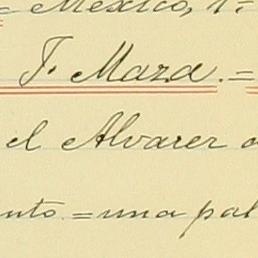 = Mexico, 1=
F. Maza. =
el Alvarez
ento = una pal